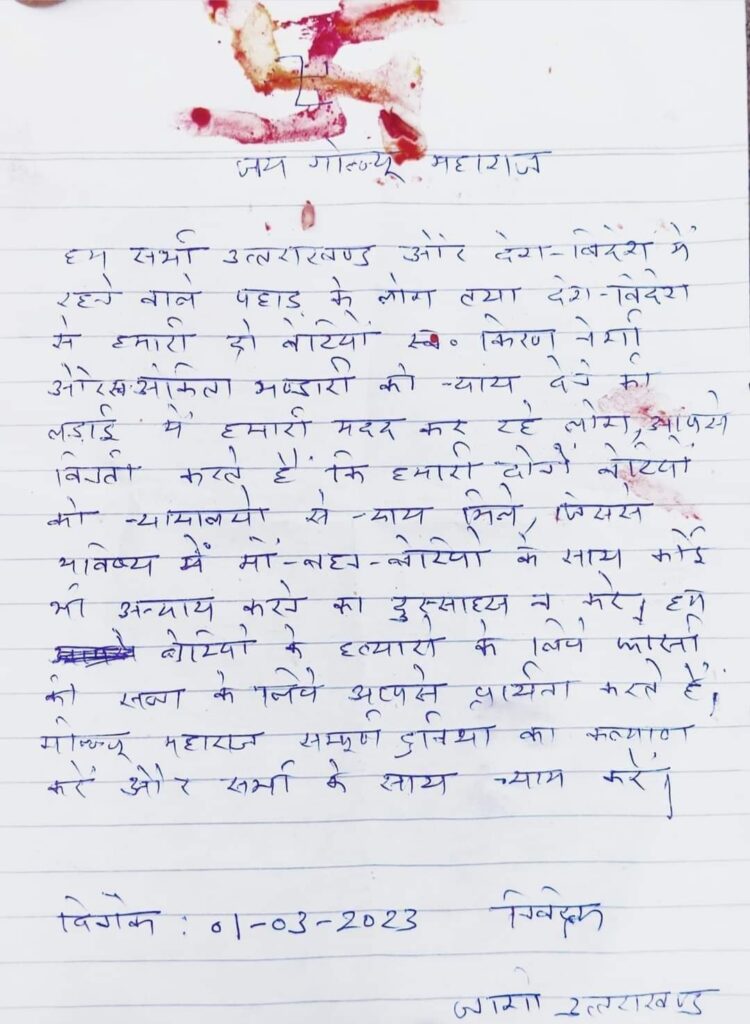 जय गोल्ज्यू महाराज
हम सभी उत्तराखण्ड और देश-विदेश में
रहने वाले पहाड़ के लोग तथा देश-विदेश
से हमारी दो बेटियों स्व० किरण नेगी
और स्व. अंकिता भण्डारी को न्याय देने की
लड़ाई में हमारी मदद कर रहे लोग, आपसे
विनती करते हैं कि हमारी दोनों बेटियों
को न्यायालयो से न्याय मिले, जिससे
भविष्य में माँ-बहन-बेटियो के साथ कोई
भी अन्याय करने का दुस्साहस न करे। हम
बेटियो के हत्यारो के लिये फासी
की सजा के लिये आपसे प्रार्थना करते हैं।
गोल्ज्यू महाराज सम्पूर्ण दुनिया का कल्याण
करें और सभी के साथ न्याय करें।
दिनाँक : 01-03-2023 निवेदक
जागो उत्तराखण्ड